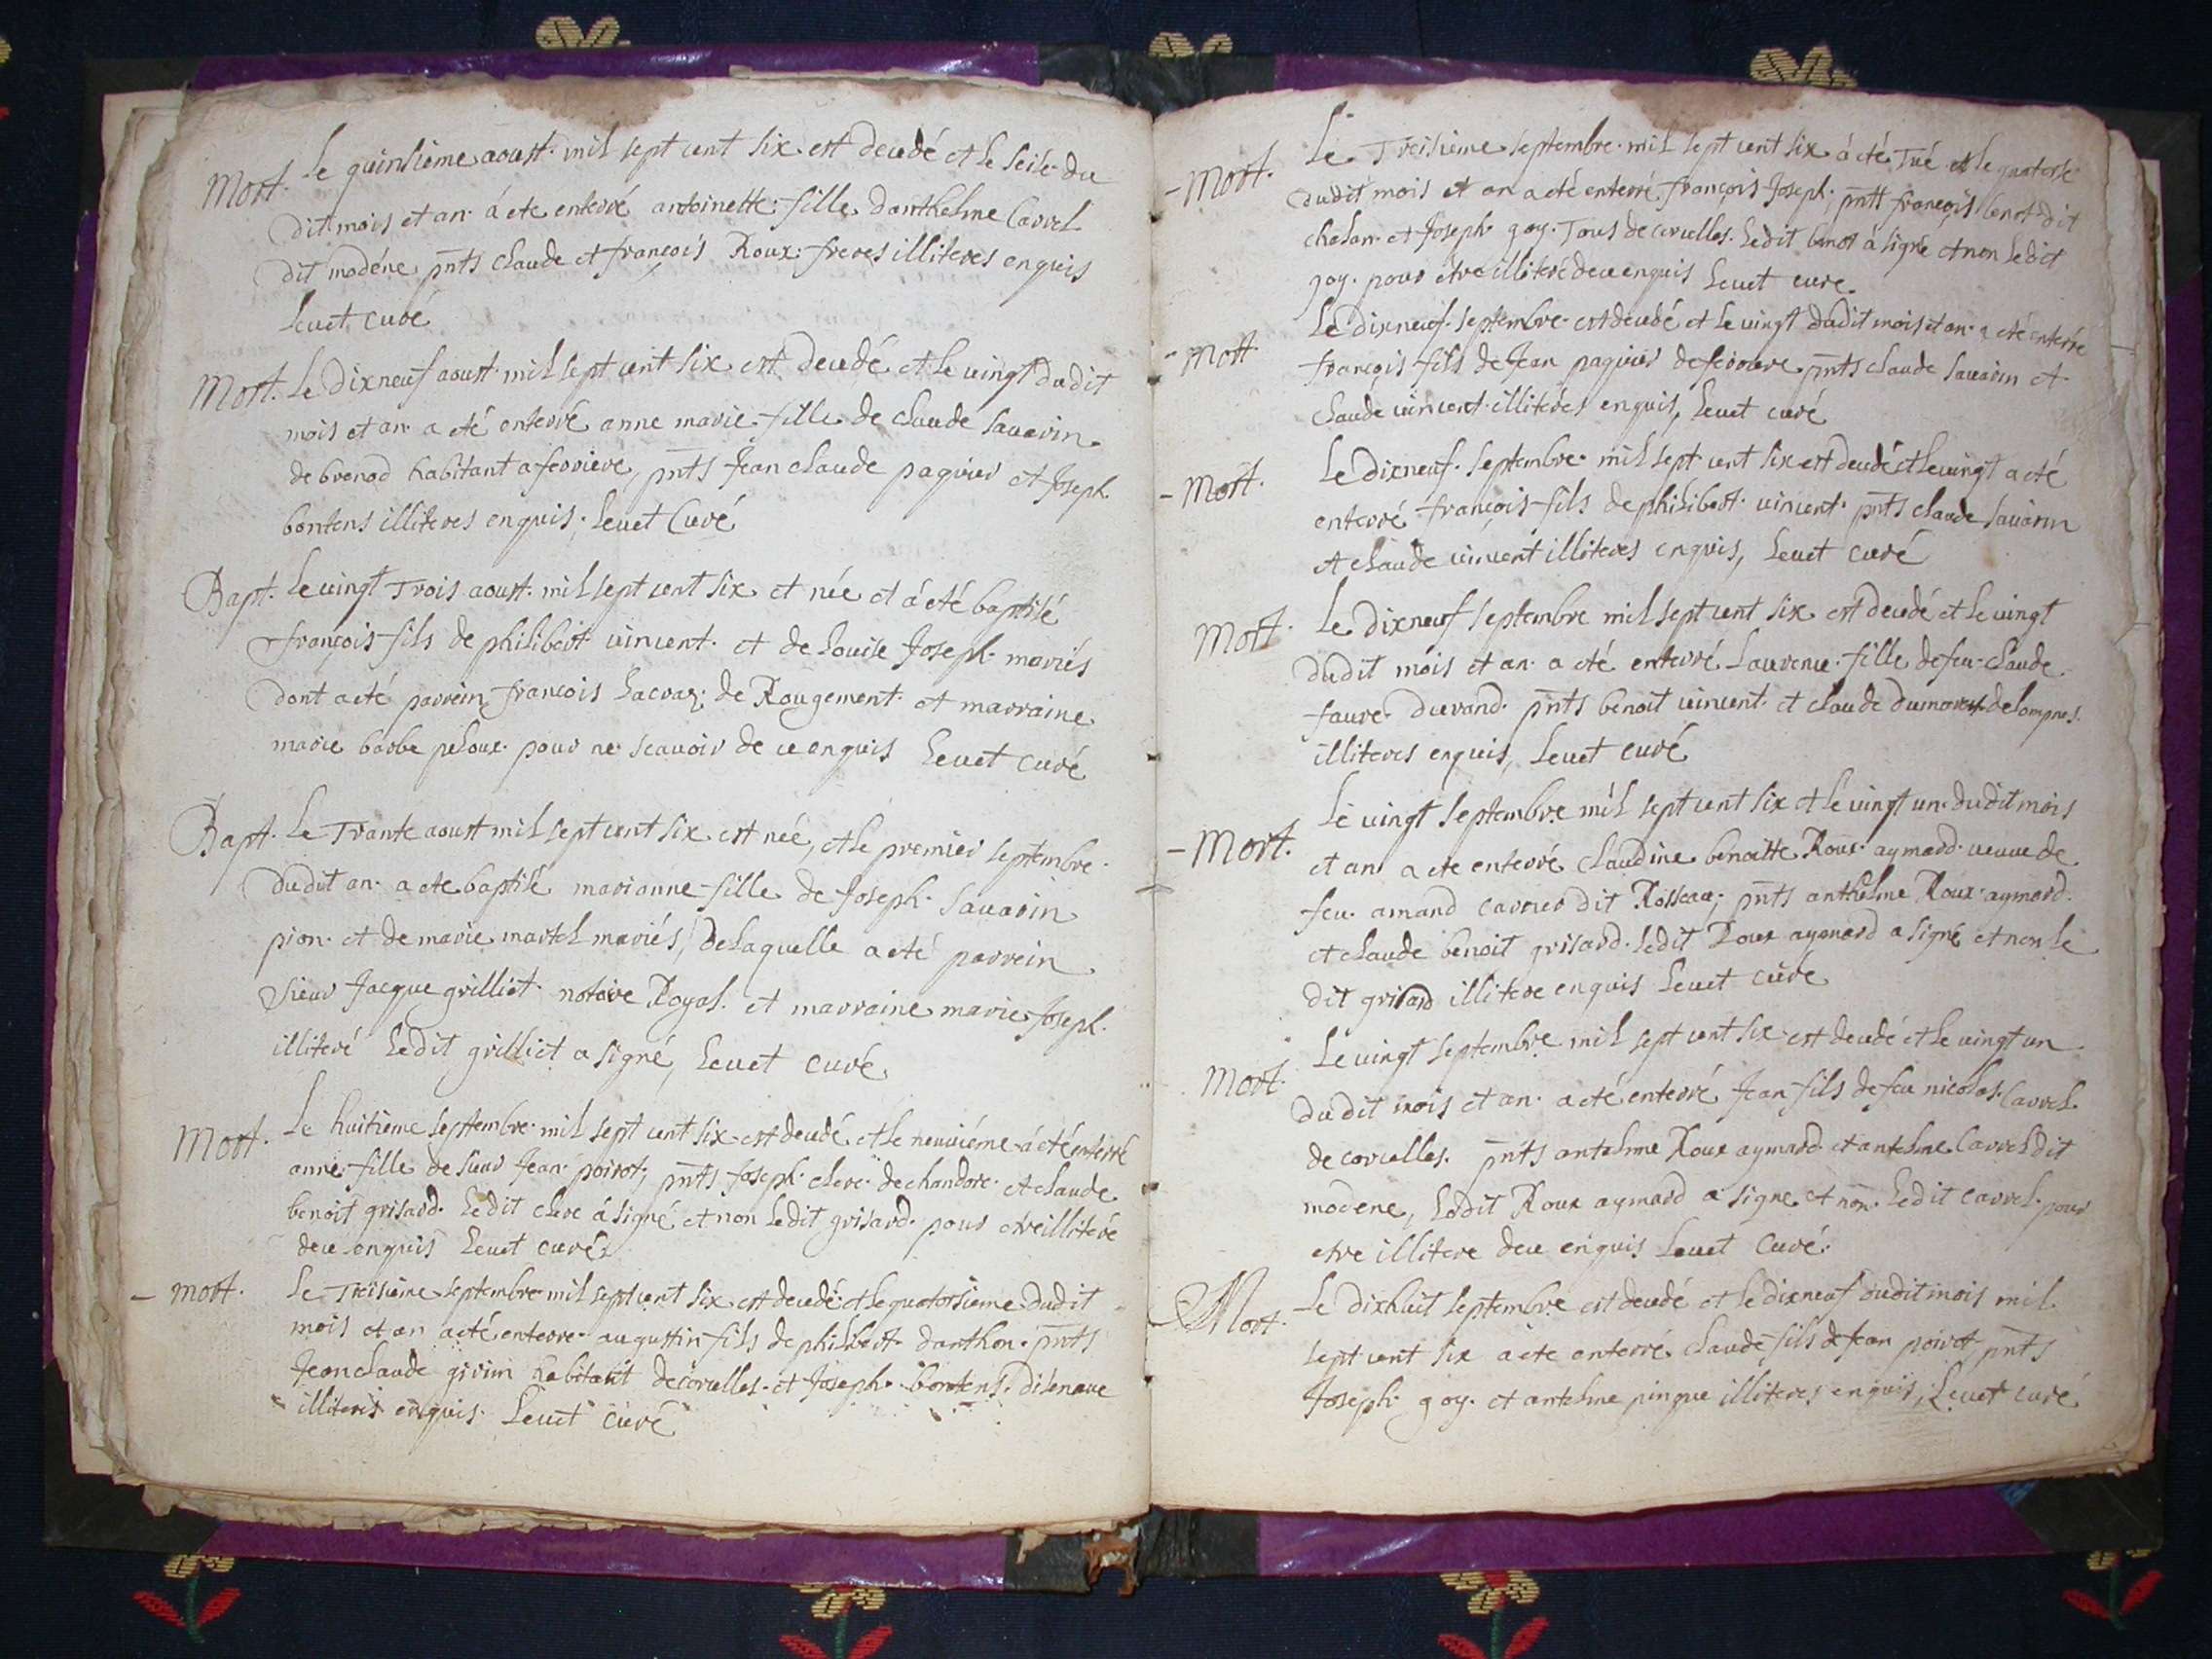 Mort. Le quinsiéme aoust mil sept cent six est decedé et le seise du
dit mois et an a ete enterré antoinette fille d'anthelme Carrel
dit modéne pnts claude et françois Roux freres illiteres enquis
Levet curé
Mort. Le dixneuf aoust mil sept cent six est decedé et le vingt dudit
mois et an a eté enterré anne marie fille de claude savarin
de brenod habitant a ferriere, pnts Jean claude paquier et Joseph
bontens illiteres enquis, Levet Curé
Bapt. Le vingt Trois aoust mil sept cent six et née et a eté baptisé
françois fils de philibert vincent et de Louise Joseph mariés
dont a eté parrein françois Lacraz de Rougemont et marraine
marie barbe peloux pour ne scavoir de ce enquis Levet curé
Bapt. Le Trante aoust mil sept cent six est née, et le premier septembre
dudit an a ete baptisé marianne fille de Joseph savarin
pion et de marie martel mariés, de Laquelle a eté parrein
sieur Jacque grilliet notaire Royal et marraine marie Joseph
illiteré Ledit grilliet a signé, Levet curé
Mort. Le huitieme septembre mil sept cent six est decedé et le neuviéme a eté enterré
anne fille de sieur Jean poirot, pnts Joseph clerc de chandore et claude
benoit grisard. Ledit clerc a signé et non Ledit grisard pour etre illiteré
de ce enquis Levet curé
- mort. Le Treisieme septembre mil sept cent six est decedé et le quatorsieme dudit
mois et an a eté enterre augustin fils de philibert danthon pnts
Jean claude givin habitant de corcelles et Joseph bontens disenave
illiteres enquis Levet curé
- Mort. Le Treisieme septembre mil sept cent six a eté Tué et le quatorse
dudit mois et an a eté enterré françois Joseph, pntt françois benot dit
chalan et Joseph goy. Tous de corcelles. Ledit benot a signé et non Ledit
goy pour etre illiteré de ce enquis Levet cure
- Mort Le dixneuf septembre est decedé et Le vingt dudit mois et an a eté enterré
françois fils de Jean paquier de ferriere pnts claude savarin et
claude vincent illiteres enquis, Levet curé
- Mort. Le dixneuf septembre mil sept cent six est decedé et Le vingt a eté
enterré françois fils de philibert vincent pnts claude savarin
et claude vincent illiteres enquis, Levet curé
Mort. Le dixneuf septembre mil sept cent six est decedé et Le vingt
dudit mois et an a eté enterré Laurence fille de feu claude
favre durand. pnts benoit vincent et claude dumarest de Lompnes
illiteres enquis, Levet curé
- Mort. Le vingt septembre mil sept cent six et Le vingt un dudit mois
et an a ete enterré claudine benoitte Roux aymard veuve de
feu amand carrier dit Rosseau; pnts anthelme Roux aymard
et claude benoit grisard. Ledit Roux aymard a signé et non Le
dit grisard illitere enquis Levet curé
Mort. Le vingt septembre mil sept cent six est decedé et Le vingt un
dudit mois et an a eté enterré Jean fils de feu nicolas Carrel
de corcelles. pnts antelme Roux aymard et antelme Carrel dit
modene, Ledit Roux aymard a signe et non Ledit carrel pour
etre illitere de ce enquis Levet Curé.
Mort. Le dixhuit septembre est decedé et Le dixneuf dudit mois mil
sept cent six a ete enterré claude fils de Jean poirot pnts
Joseph goy. et antelme pingue illiteres enquis, Levet curé